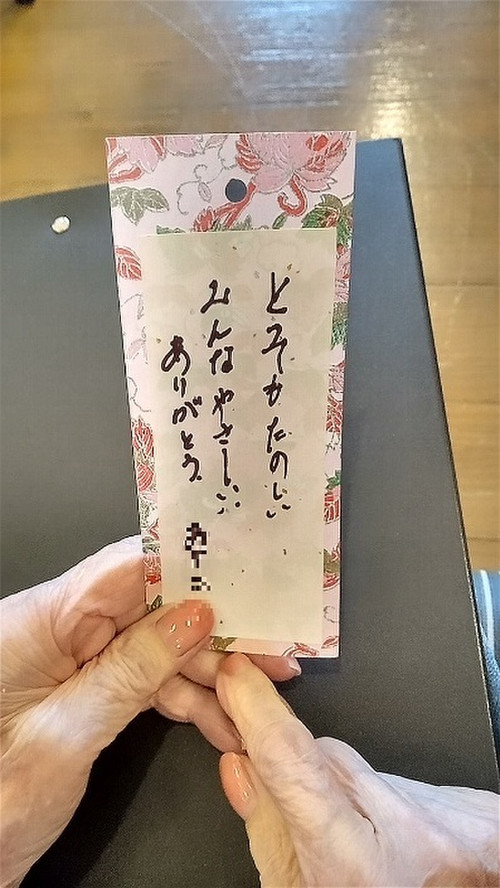 たのしい
みんなやさしい
ありがとう